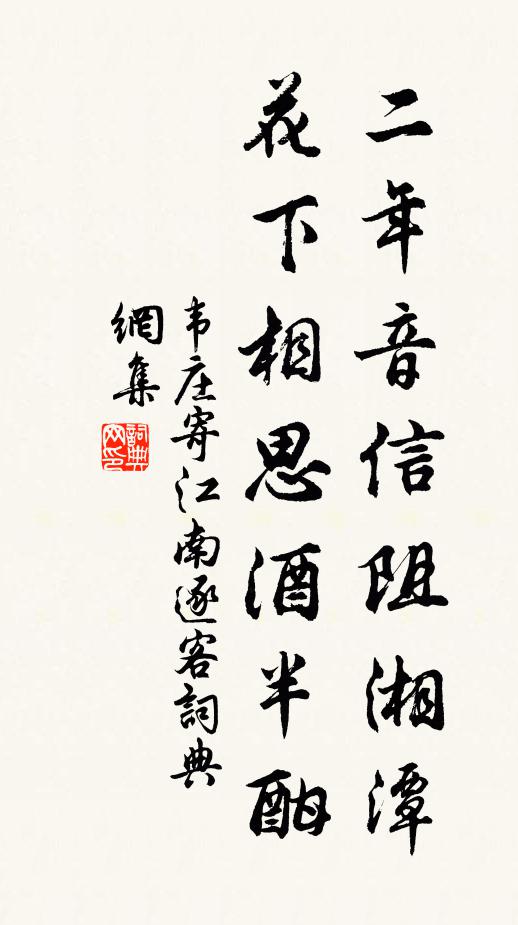 二年音信阻湘潭
花下相思酒半酣
韦庄寄江南逐客詞典
網集
詞典
网印